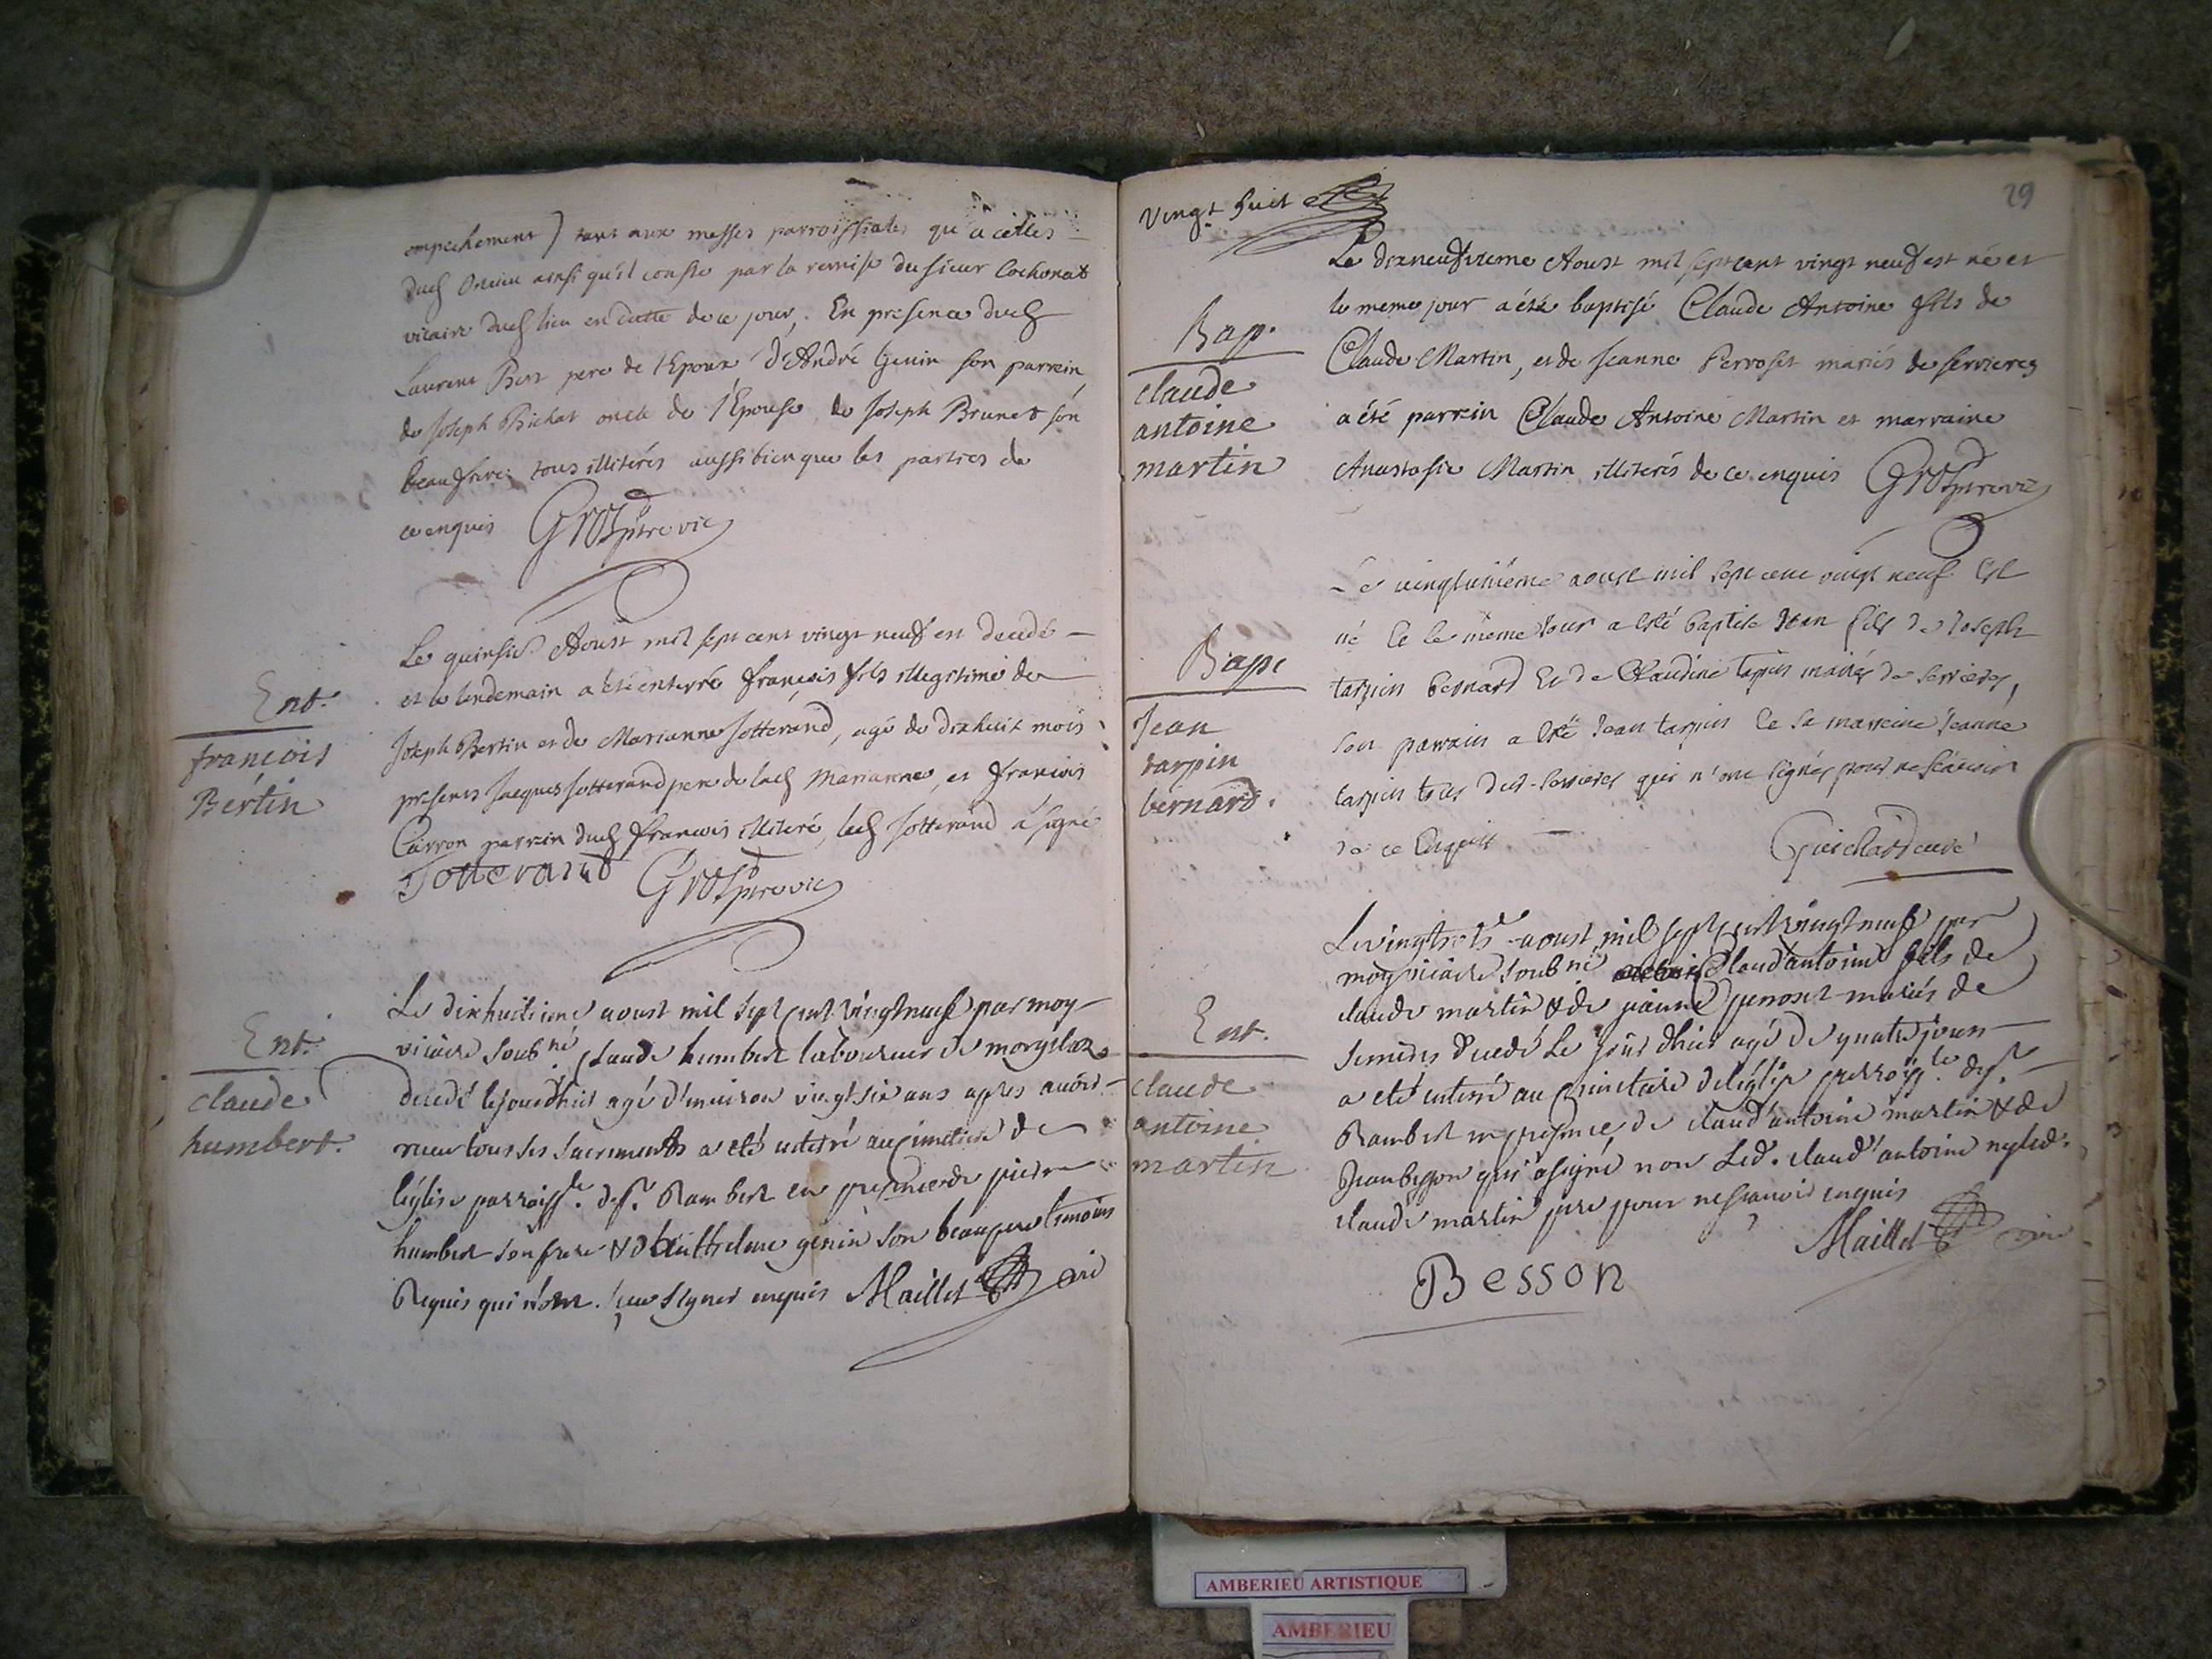 empechement) tant aux messes parroissiales qu'a celles
dud Oncieu ainsi qu'il conste par la remise du sieur Cochonat
vicaire dud lieu en datte de ce jour, En presence dud
Laurent Bert pere de l'Epoux d'André Genin son parrein
de Joseph Bichat oncle de l'Epouse de Joseph Brunet son
beaufrere tous illiterés aussi bien que les parties de
ce enquis Grosptre vic
Ent.
françois
Bertin
Le quinsie Aoust mil sept cent vingt neuf est decedé
et le lendemain a été enterré françois fils illegitime de
Joseph Bertin et de Marianne Jotterand, agé de dixhuit mois
presents Jacques Jotterand pere de lad Marianne, et françois
Carron parrein dud françois illiteré, led Jotterand a signé
Jotterand Grosptre vic
Ent.
claude
humbert.
Le dixhuitieme aoust mil sept cent vingt neuf par moy
vicaire soubné Claude humbert laboureur de morgelas
decedé le jour dhier agé d'environ vingt six ans apres avoir
receu tous ses sacrements a eté enterré au cimetiere de
l'église parroissle. de St. Rambert en presence de pierre
humbert son frere & d'anthelme genin son beaupere temoins
Requis qui n'ont sceu signer enquis Maillet vic
vingt huit
29
Bap.
claude
antoine
martin
Le dixneufvieme Aoust mil sept cent vingt neuf est né et
le meme jour a été baptisé Claude Antoine fils de
Claude Martin, et de Jeanne Perroset mariés de servieres
a été parrein Claude Antoine Martin et marraine
Anastasie Martin illiterés de ce enquis Grosptre vic
Bap.
Jean
tarpin
bernard.
Le vingtunième aoust mil sept cent vingt neuf est
né et le même jour a esté baptisé Jean fils de Joseph
tarpin bernard et de Claudine tarpin mariés de servieres,
son parrain a esté Jean tarpin et sa marreine Jeanne
tarpin tous dud. servieres qui n'ont signés pour ne scavoir
de ce enquis Guichard curé
Ent.
claude
antoine
martin
Le vingt aoust mil sept cent vingt neuf par
moy vicaire soubné Claud'antoine fils de
claude martin & de jeanne perroset mariés de
decedé Le jour dhier agé de quatre jours
a eté enterré au cimetiere de l'église parroissle de St.
Rambert en presence de claud'antoine martin & de
Jean besson qui a signé non Led. claud'antoine ny led.
claude martin pere pour ne scavoir enquis
Maillet vic
Besson
AMBERIEU ARTISTIQUE
AMBERIEU